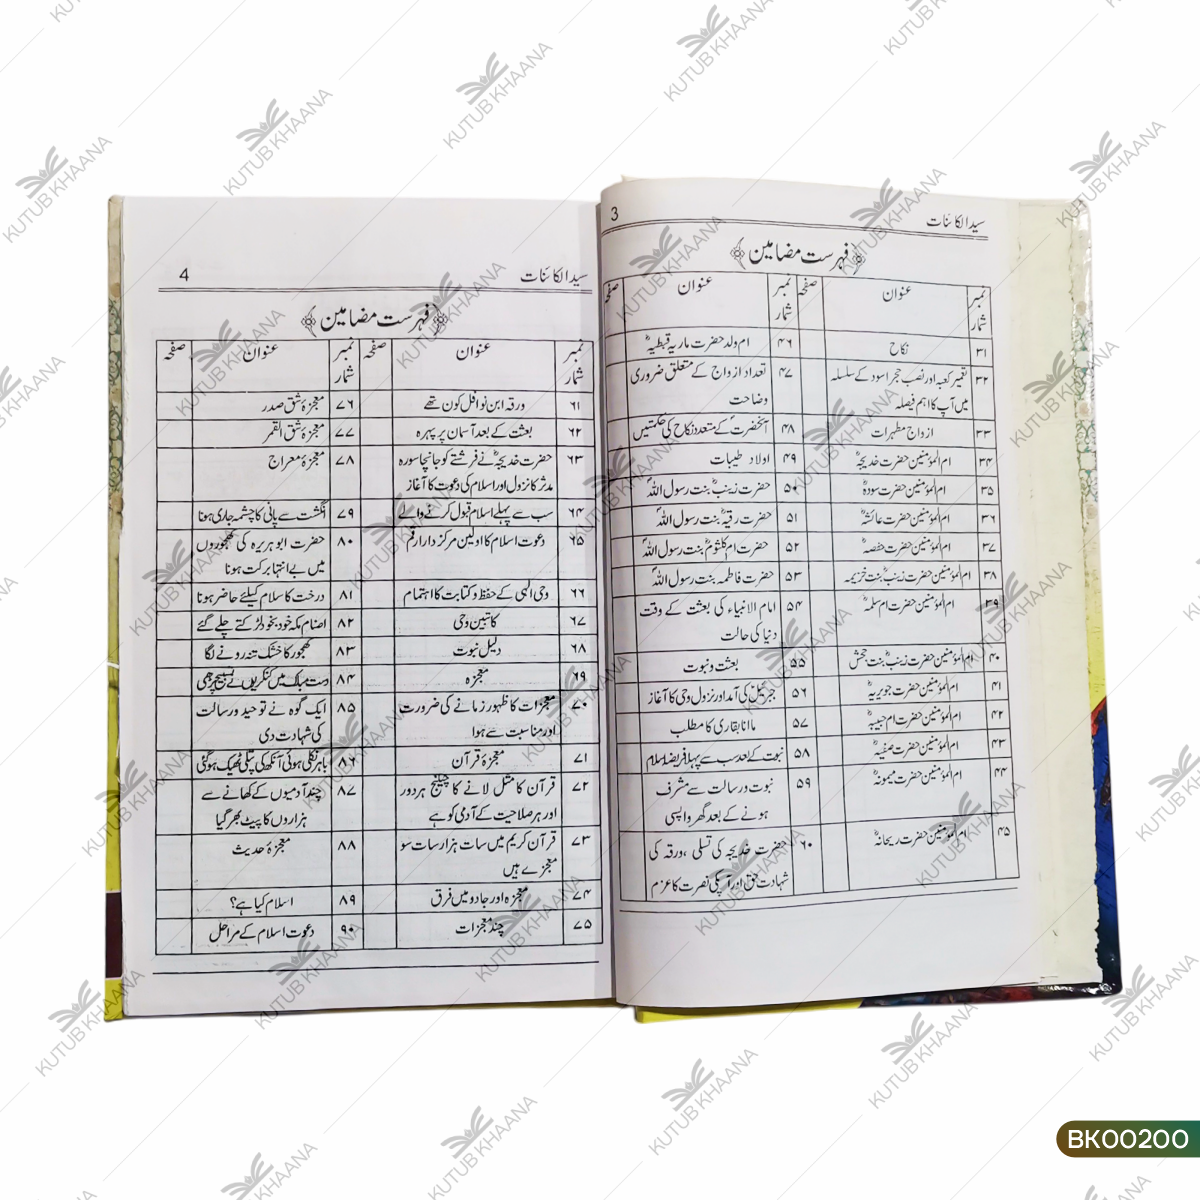 سید الکائنات 3
﴿فہرست مضامین﴾
نمبر شمار عنوان صفحہ نمبر شمار عنوان صفحہ
۳۱ نکاح
۳۲ تعمیر کعبہ اور نصب حجر اسود کے سلسلہ
میں آپ کا اہم فیصلہ
۳۳ ازواج مطہرات
۳۴ ام المؤمنین حضرت خدیجہؓ
۳۵ ام المؤمنین حضرت سودہؓ
۳۶ ام المؤمنین حضرت عائشہؓ
۳۷ ام المؤمنین حضرت حفصہؓ
۳۸ ام المؤمنین حضرت زینبؓ بنت خزیمہ
۳۹ ام المؤمنین حضرت ام سلمہؓ
۴۰ ام المؤمنین حضرت زینبؓ بنت جحش
۴۱ ام المؤمنین حضرت جویریہؓ
۴۲ ام المؤمنین حضرت ام حبیبہؓ
۴۳ ام المؤمنین حضرت صفیہؓ
۴۴ ام المؤمنین حضرت میمونہؓ
۴۵ ام المؤمنین حضرت ریحانہؓ
۴۶ ام ولد حضرت ماریہ قبطیہؓ
۴۷ تعداد ازواج کے متعلق ضروری
وضاحت
۴۸ آنحضرتؐ کے متعدد نکاح کی حکمتیں
۴۹ اولاد طیبات
۵۰ حضرت زینبؓ بنت رسول اللہؐ
۵۱ حضرت رقیہؓ بنت رسول اللہؐ
۵۲ حضرت ام کلثومؓ بنت رسول اللہؐ
۵۳ حضرت فاطمہ بنت رسول اللہؐ
۵۴ امام الانبیاء کی بعثت کے وقت
دنیا کی حالت
۵۵ بعثت و نبوت
۵۶ جبرئیلؑ کی آمد اور نزول وحی کا آغاز
۵۷ ماانا بقاری کا مطلب
۵۸ نبوت کے بعد سب سے پہلا فریضہ اسلام
۵۹ نبوت و رسالت سے مشرف
ہونے کے بعد گھر واپسی
۶۰ حضرت خدیجہ کی تسلی ،ورقہ کی
شہادت حق اور آپکی نصرت کا عزم
سید الکائنات 4
﴿فہرست مضامین﴾
نمبر شمار عنوان صفحہ نمبر شمار عنوان صفحہ
۶۱ ورقہ ابن نوافل کون تھے
۶۲ بعثت کے بعد آسمان پر پہرہ
۶۳ حضرت خدیجہؓ نے فرشتے کو جانچا سورہ
مدثر کا نزول اور اسلام کی دعوت کا آغاز
۶۴ سب سے پہلے اسلام قبول کرنے والے
۶۵ دعوت اسلام کا اولین مرکز دار ارقم
۶۶ وحی الٰہی کے حفظ و کتابت کا اہتمام
۶۷ کاتبین وحی
۶۸ دلیل نبوت
۶۹ معجزہ
۷۰ معجزات کا ظہور زمانے کی ضرورت
اور مناسبت سے ہوا
۷۱ معجزۂ قرآن
۷۲ قرآن کا مثل لانے کا چیلنج ہر دور
اور ہر صلاحیت کے آدمی کو ہے
۷۳ قرآن کریم میں سات ہزار سات سو
معجزے ہیں
۷۴ معجزہ اور جادو میں فرق
۷۵ چند معجزات
۷۶ معجزۂ شق صدر
۷۷ معجزۂ شق القمر
۷۸ معجزۂ معراج
۷۹ انگشت سے پانی کا چشمہ جاری ہونا
۸۰ حضرت ابو ہریرہ کی کھجوروں
میں بے انتہا برکت ہونا
۸۱ درخت کا سلام کیلئے حاضر ہونا
۸۲ اصنام مکہ خود بخود لڑکتے چلے گئے
۸۳ کھجور کا خشک تنہ رونے لگا
۸۴ دست مبارک میں کنکریوں نے تسبیح پڑھی
۸۵ ایک گوہ نے توحید و رسالت
کی شہادت دی
۸۶ باہر نکلی ہوئی آنکھ کی پتلی ٹھیک ہوگئی
۸۷ چند آدمیوں کے کھانے سے
ہزاروں کا پیٹ بھر گیا
۸۸ معجزۂ حدیث
۸۹ اسلام کیا ہے؟
۹۰ دعوت اسلام کے مراحل
KUTUB KHAANA
BK00200